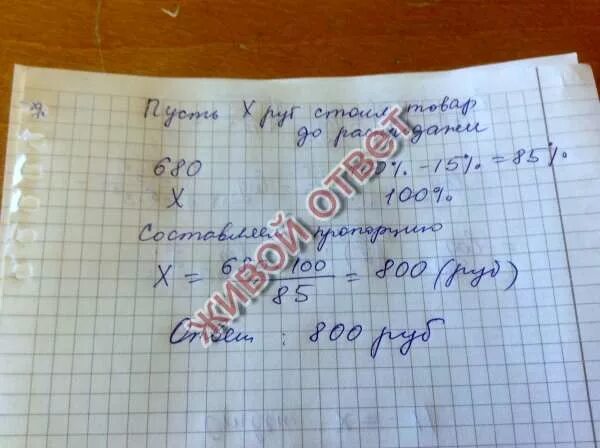 Пусть X руб стоил товар
до распродажи
680 100% - 15% = 85%
X 100%
Составляем пропорцию
X = 680 · 100 / 85 = 800 (руб)
Ответ : 800 руб
ЖИВОЙ ОТВЕТ